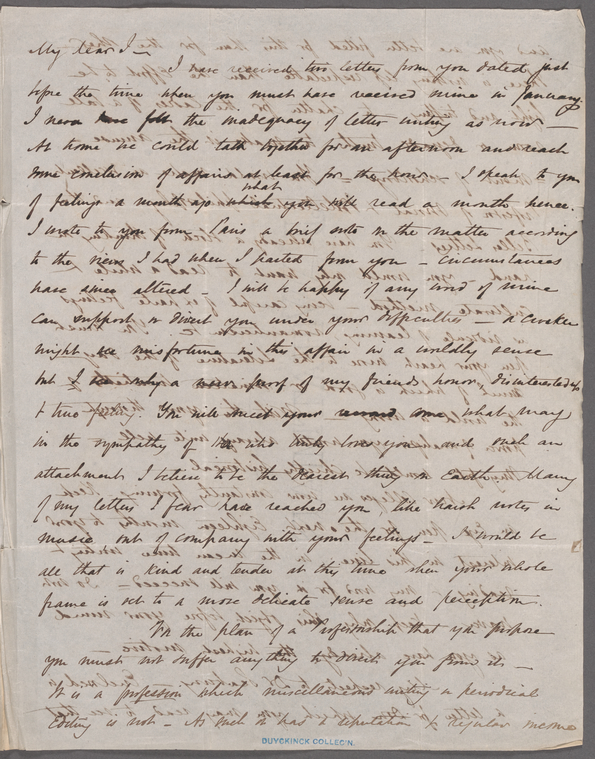 My dear J—
I have received this letter from you dated just
before the time when you must have received mine in January.
I never have felt the inadequacy of letter writing as now —
At home we could talk together for an afternoon and reach
some conclusion of affairs at least for the hour — I speak to you
of feelings a month ago which what you will read a month hence.
I wrote to you from Paris a brief note on the matter according
to the views I had when I parted from you — circumstances
have since altered — I will be happy if any word of mine
can support or direct you under your difficulties — a croaker
might see misfortune in this affair in a worldly sense
but I see only a new proof of my friends honor, disinterestedness
& true You will meet your some what may
in the sympathy of who truly loves you and such an
attachment I believe to be the dearest thing on Earth. Many
of my letters I fear have reached you like harsh notes in
music out of company with your feelings — I would be
all that is kind and tender at this time when your whole
frame is set to a more delicate sense and perception.
In the plan of a Professorship that you propose
you must not suffer anything to divert you from it. —
It is a profession which miscellaneous writing or periodical
Editing is not — As such it has reputation & regular income
DUYCKINCK COLLEC'N.